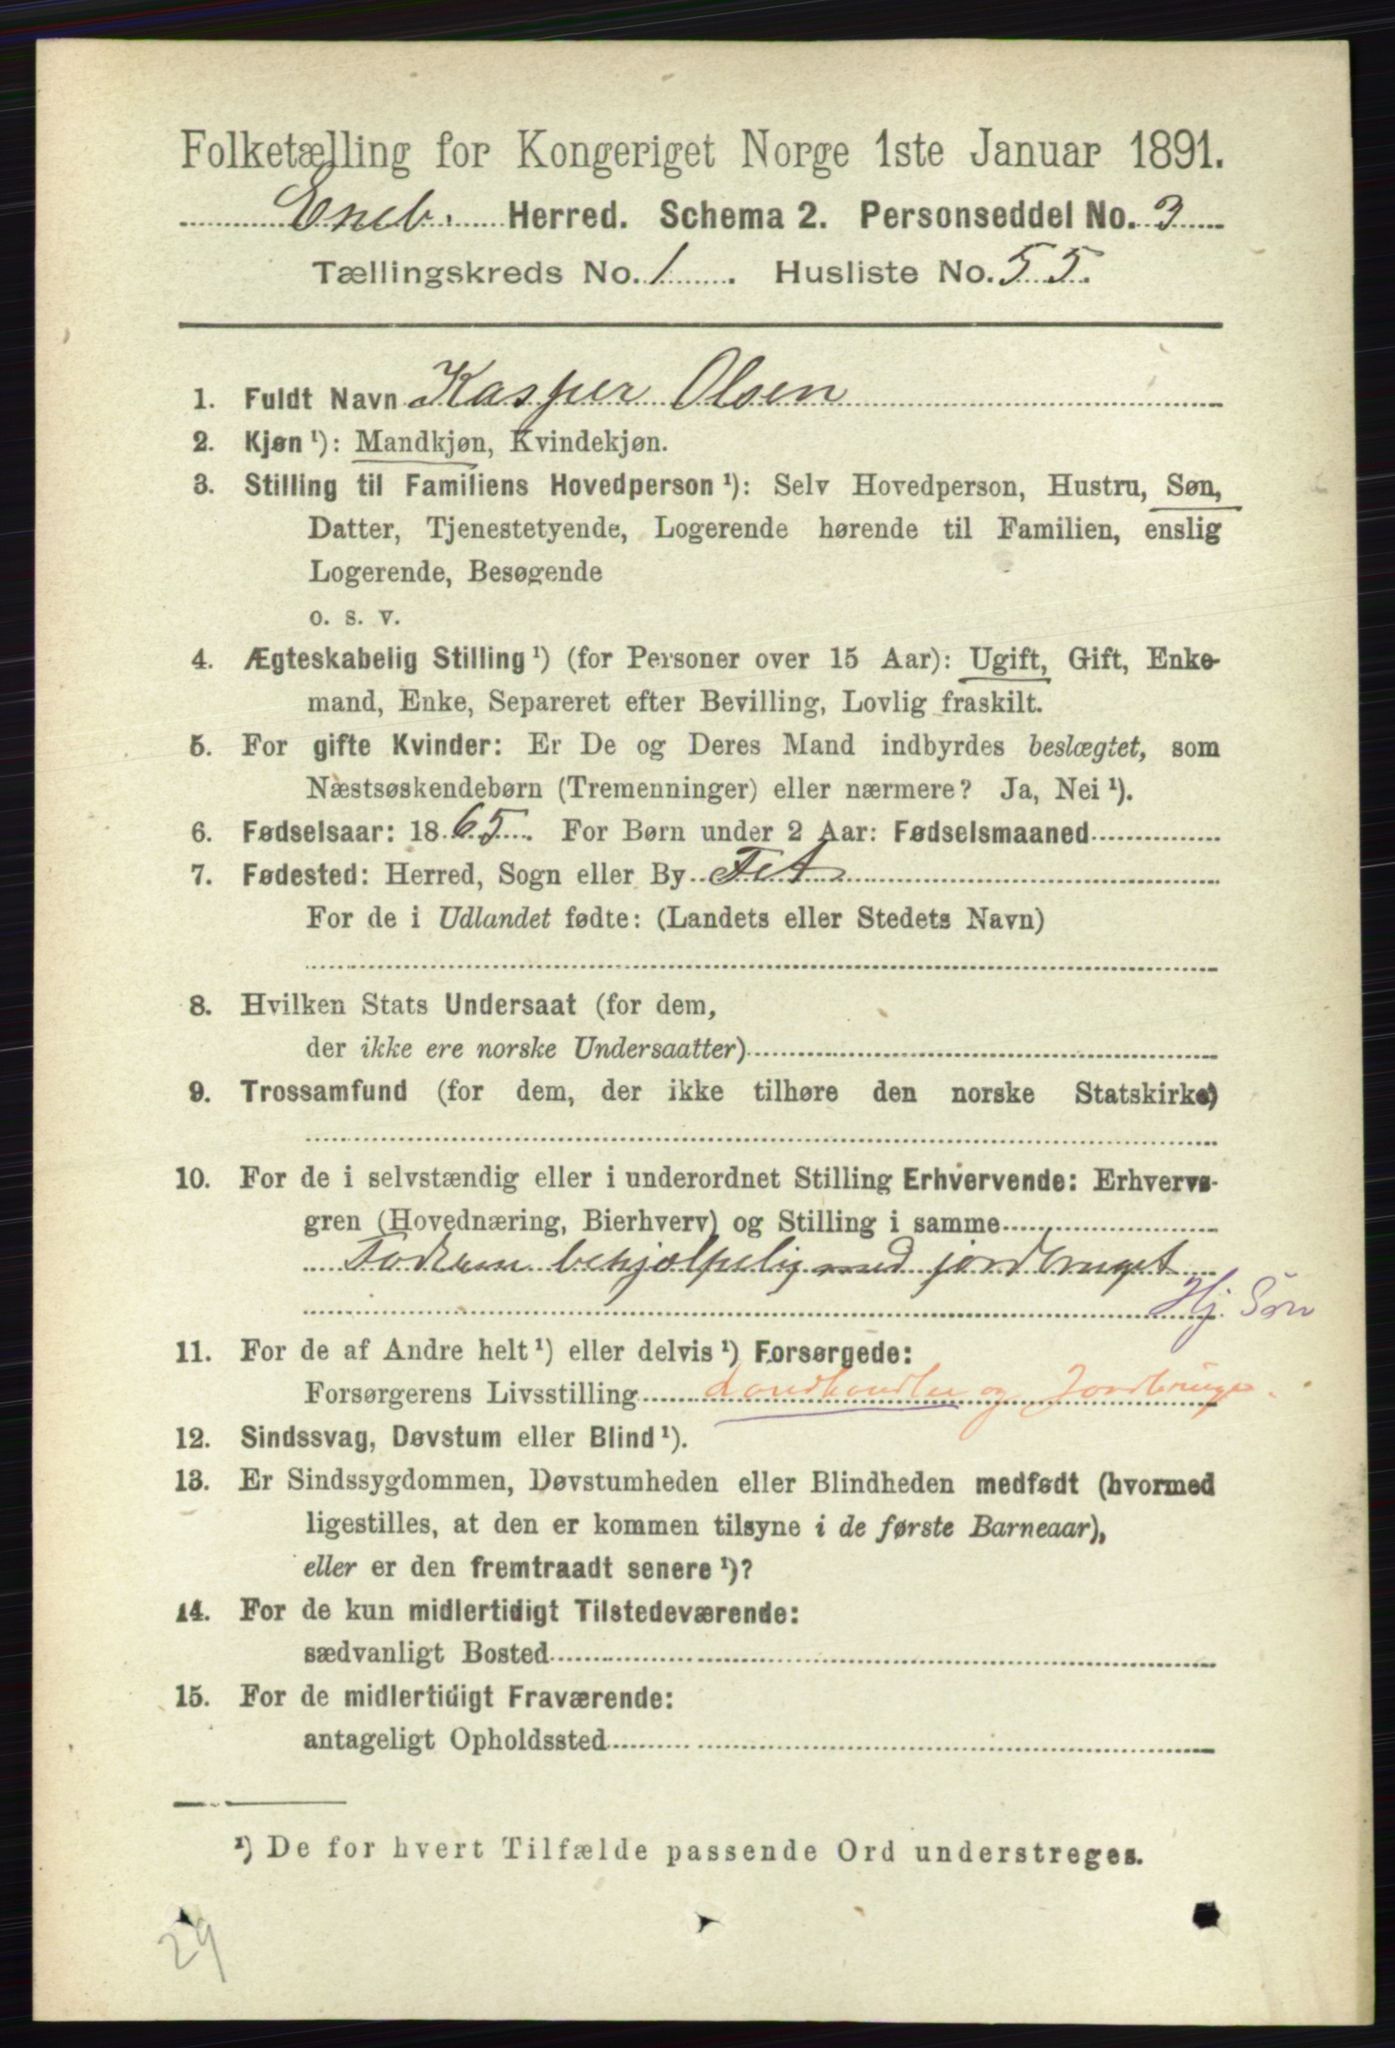 Folketælling for Kongeriget Norge 1ste Januar 1891.
Eneb. Herred. Schema 2. Personseddel No. 3
Tællingskreds No. 1. Husliste No. 55.
1. Fuldt Navn Kasper Olsen
2. Kjøn ¹): Mandkjøn, Kvindekjøn.
3. Stilling til Familiens Hovedperson ¹): Selv Hovedperson, Hustru, Søn,
Datter, Tjenestetyende, Logerende hørende til Familien, enslig
Logerende, Besøgende
o. s. v.
4. Ægteskabelig Stilling ¹) (for Personer over 15 Aar): Ugift, Gift, Enke-
mand, Enke, Separeret efter Bevilling, Lovlig fraskilt.
5. For gifte Kvinder: Er De og Deres Mand indbyrdes beslægtet, som
Næstsøskendebørn (Tremenninger) eller nærmere? Ja, Nei ¹).
6. Fødselsaar: 1865. For Børn under 2 Aar: Fødselsmaaned
7. Fødested: Herred, Sogn eller By Fet
For de i Udlandet fødte: (Landets eller Stedets Navn)
8. Hvilken Stats Undersaat (for dem,
der ikke ere norske Undersaatter)
9. Trossamfund (for dem, der ikke tilhøre den norske Statskirke)
10. For de i selvstændig eller i underordnet Stilling Erhvervende: Erhvervs-
gren (Hovednæring, Bierhverv) og Stilling i samme
behjælpelig med jordbruget
Hj. Søn
11. For de af Andre helt ¹) eller delvis ¹) Forsørgede:
Forsørgerens Livsstilling Landhandler og Jordbruger
12. Sindssvag, Døvstum eller Blind ¹).
13. Er Sindssygdommen, Døvstumheden eller Blindheden medfødt (hvormed
ligestilles, at den er kommen tilsyne i de første Barneaar),
eller er den fremtraadt senere ¹)?
14. For de kun midlertidigt Tilstedeværende:
sædvanligt Bosted
15. For de midlertidigt Fraværende:
antageligt Opholdssted
¹) De for hvert Tilfælde passende Ord understreges.
29